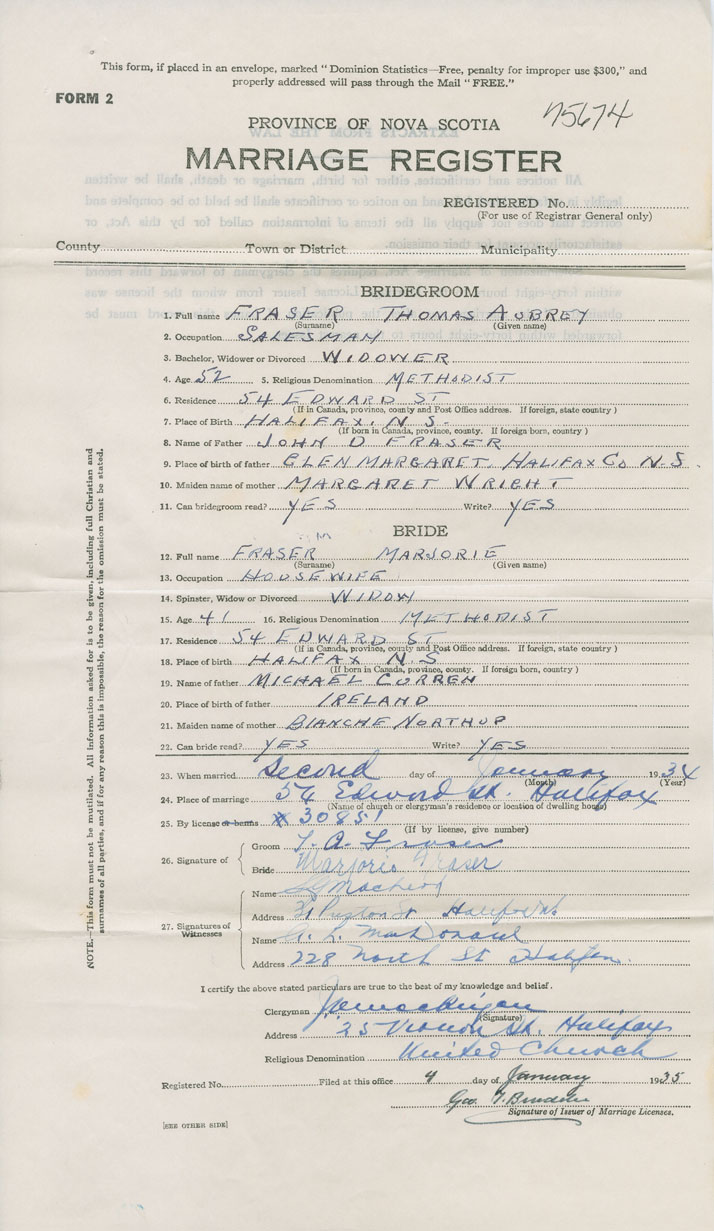 This form, if placed in an envelope, marked "Dominion Statistics—Free, penalty for improper use $300," and
properly addressed will pass through the Mail "FREE."
FORM 2
75674
PROVINCE OF NOVA SCOTIA
MARRIAGE REGISTER
REGISTERED No.
(For use of Registrar General only)
County Town or District Municipality
BRIDEGROOM
1. Full name FRASER THOMAS AUBREY
(Surname) (Given name)
2. Occupation SALESMAN
3. Bachelor, Widower or Divorced WIDOWER
4. Age 52 5. Religious Denomination METHODIST
6. Residence 54 EDWARD ST
(If in Canada, province, county and Post Office address. If foreign, state country)
7. Place of Birth HALIFAX, N.S.
(If born in Canada, province, county. If foreign born, country)
8. Name of Father JOHN D FRASER
9. Place of birth of father GLEN MARGARET, HALIFAX CO N.S.
10. Maiden name of mother MARGARET WRIGHT
11. Can bridegroom read? YES Write? YES
BRIDE
12. Full name FRASER MARJORIE
(Surname) (Given name)
13. Occupation HOUSEWIFE
14. Spinster, Widow or Divorced WIDOW
15. Age 41 16. Religious Denomination METHODIST
17. Residence 54 EDWARD ST
(If in Canada, province, county and Post Office address. If foreign, state country)
18. Place of birth HALIFAX N.S
(If born in Canada, province, county. If foreign born, country)
19. Name of father MICHAEL CURREN
20. Place of birth of father IRELAND
21. Maiden name of mother BLANCHE NORTHUP
22. Can bride read? YES Write? YES
23. When married second day of January 193
(Month) (Year)
24. Place of marriage 54 Edward St. Halifax
(Name of church or clergyman's residence or location of dwelling house)
25. By license or banns # 30851
(If by license, give number)
26. Signature of Groom T. A. Fraser
Bride Marjorie Fraser
27. Signatures of Witnesses
Name
Address St Halifax
Name
Address 228 North St Halifax.
I certify the above stated particulars are true to the best of my knowledge and belief.
Clergyman
(Signature)
Address 25 Vernon St. Halifax
Religious Denomination United Church
Registered No. Filed at this office 4 day of January 1935
Geo.
Signature of Issuer of Marriage Licenses.
[SEE OTHER SIDE]
NOTE.—This form must not be mutilated. All information asked for is to be given, including full Christian and
surnames of all parties, and if for any reason this is impossible, the reason for the omission must be stated.